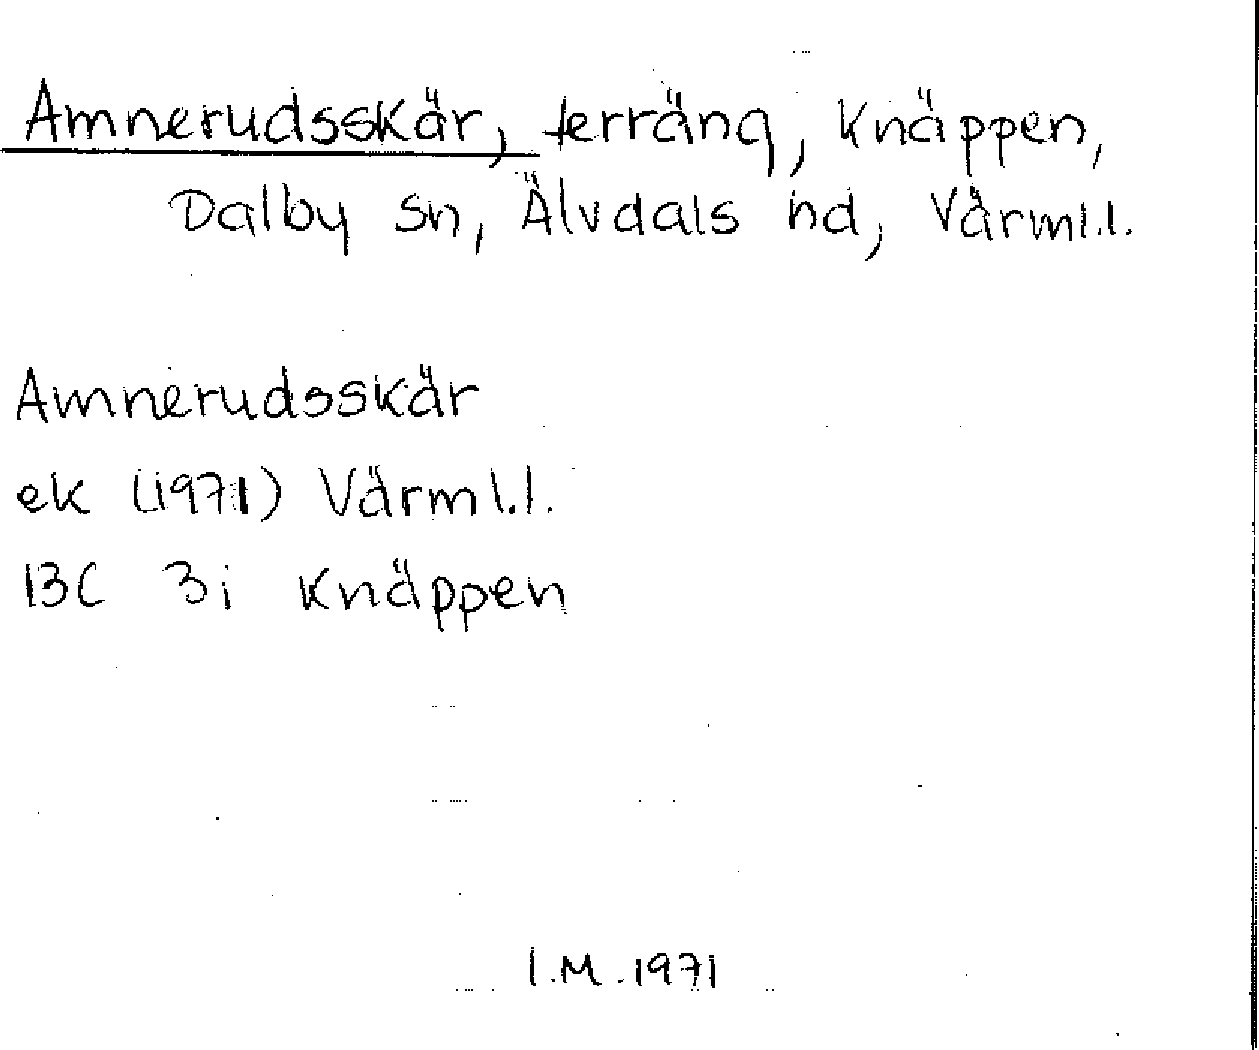 Amnerudsskär, terräng, Knäppen,
Dalby sn, Älvdals hd, Värml.l.
Amnerudsskär
ek (1971) Värml.l.
13C 3i Knäppen
I.M. 1971